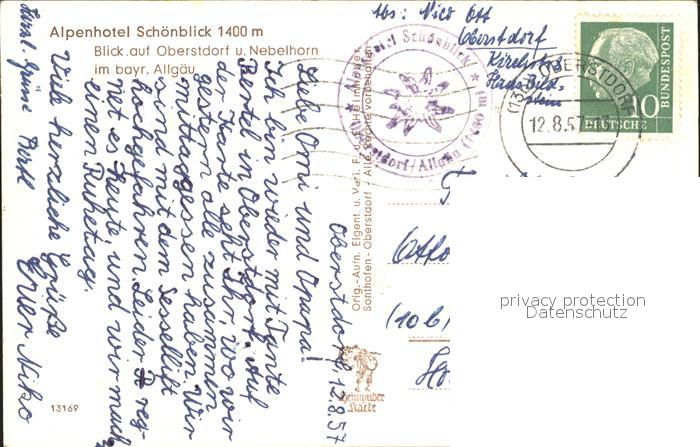 Alpenhotel Schönblick 1400 m
Blick auf Oberstdorf u. Nebelhorn
im bayr. Allgäu
Abs: Nico Ott
Oberstdorf
Alpenhotel Schönblick
Oberstdorf/Allgäu (1400 m)
OBERSTDORF
12.8.57
10
DEUTSCHE
BUNDESPOST
Oberstdorf, 12.8.57
Liebe Omi und Opapa!
Ich bin wieder mit Tante
Bertl in Oberstdorf. Auf
der Karte seht Ihr, wo wir
gestern alle zusammen
mittaggessen haben. Wir
sind mit dem Sessellift
hochgefahren. Leider reg-
net es heute und wir machen
einen Ruhetag.
Viele herzliche Grüße
Euer Niko
Grüsse Bertl
Orig.-Aufn. Eigent. u. Verl. F. u. H. Heimhuber
Sonthofen - Oberstdorf - Alle Rechte vorbehalten
Otto
(10b)
heimhuber
Karte
13169
privacy protection
Datenschutz